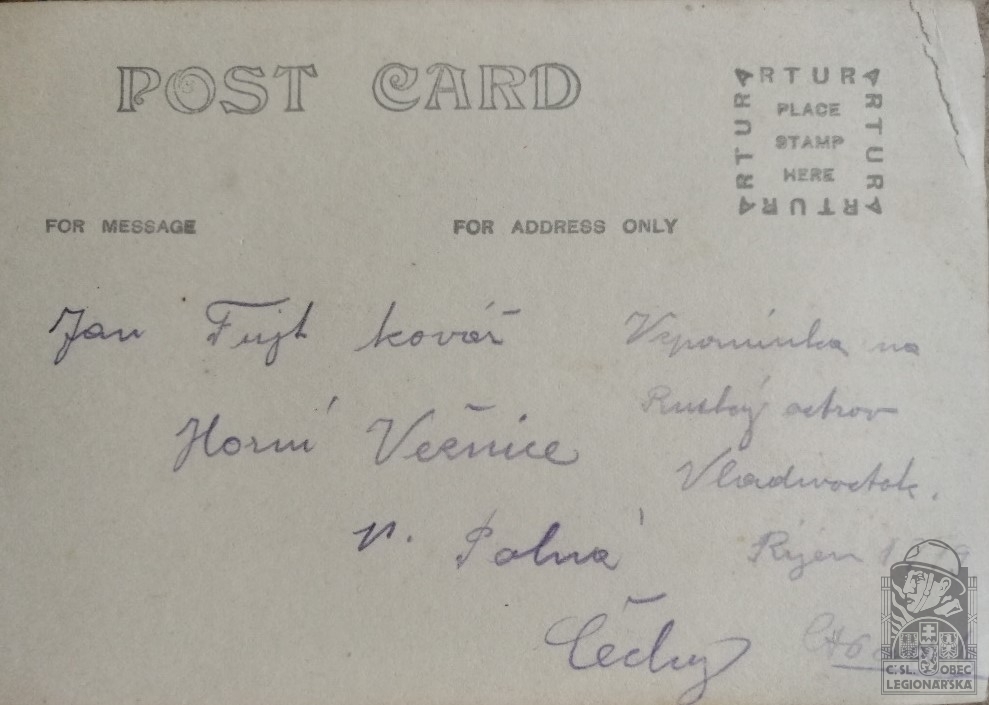 POST CARD
ARTURA
ARTURA
ARTURA
ARTURA
PLACE
STAMP
HERE
FOR MESSAGE
FOR ADDRESS ONLY
Jan Fujt kovář
Horní Věžnice
p. Polná
Čechy
Vzpomínka na
Ruský ostrov
Vladivostok.
Říjen
Č.SL. OBEC
LEGIONÁŘSKÁ